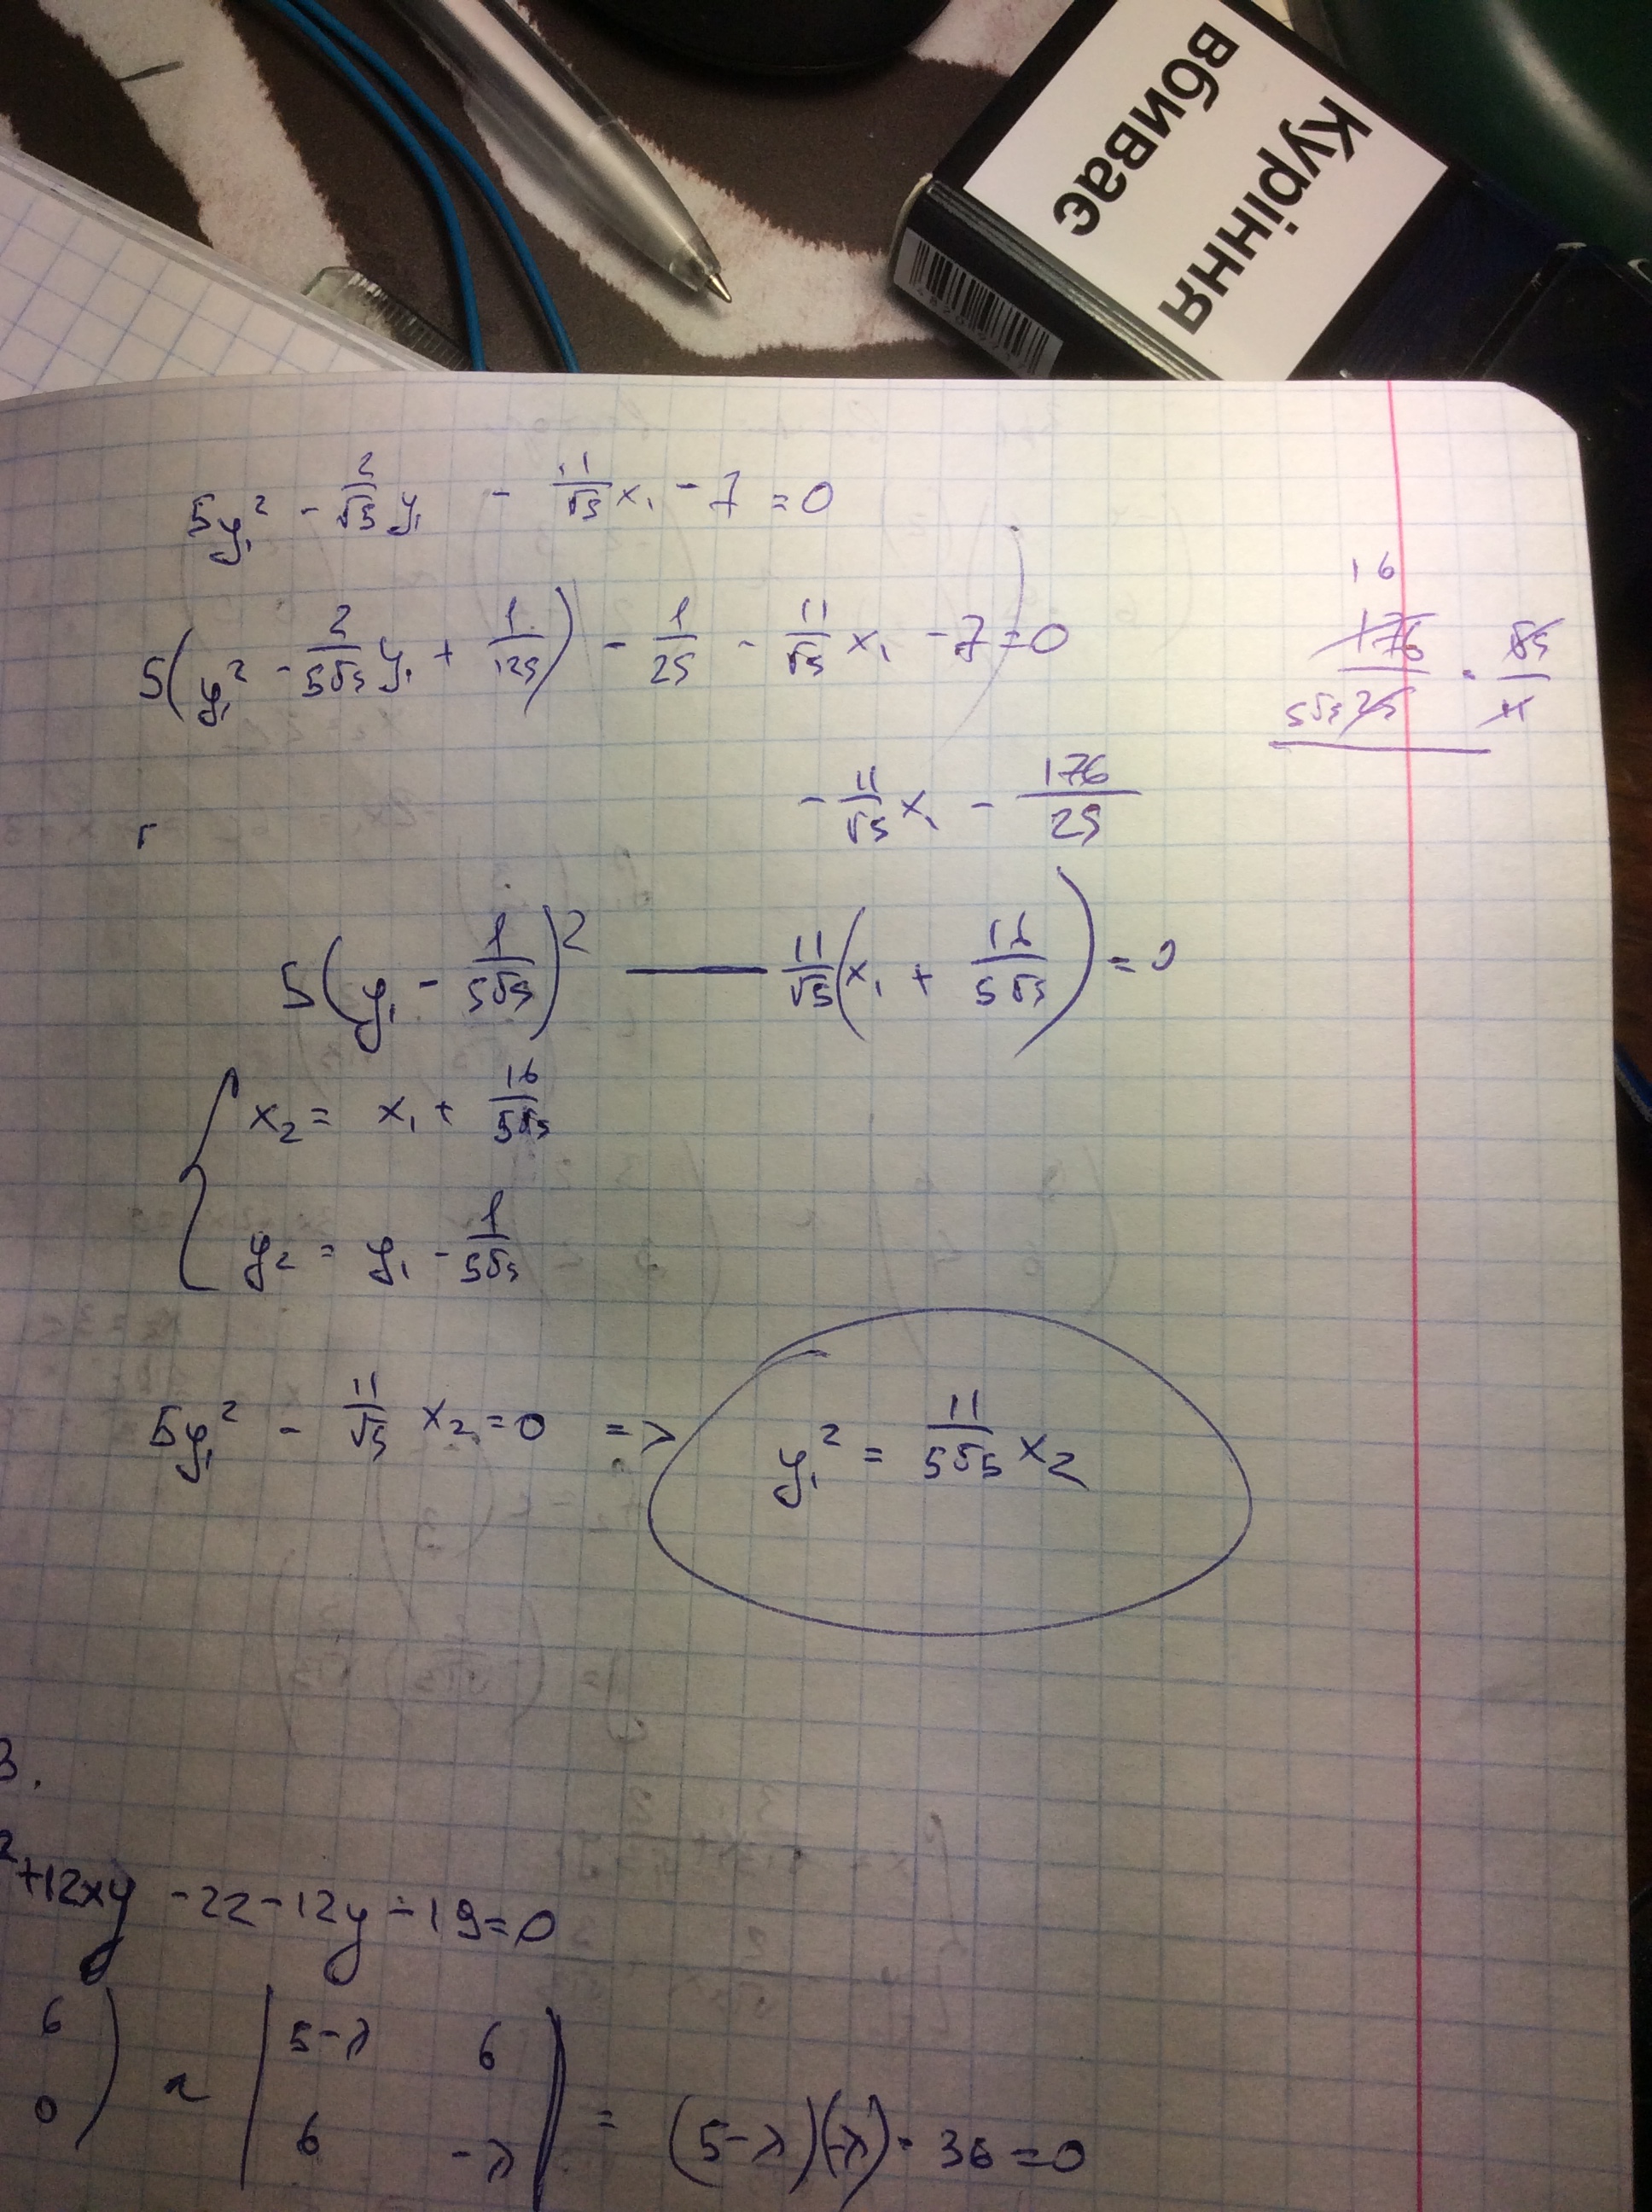 Куріння
вбиває
5y₁² - 2/√5 y₁ - 11/√5 x₁ - 7 = 0
5(y₁² - 2/5√5 y₁ + 1/125) - 1/25 - 11/√5 x₁ - 7 = 0
16
176/5√5 25 · √5/11
- 11/√5 x₁ - 176/25
5(y₁ - 1/5√5)² — 11/√5 (x₁ + 16/5√5) = 0
x₂ = x₁ + 16/5√5
y₂ = y₁ - 1/5√5
5y₁² - 11/√5 x₂ = 0 => y₁² = 11/5√5 x₂
3.
² + 12xy - 22 - 12y - 19 = 0
6 5-λ 6
0 ~ 6 -λ = (5-λ)(-λ) - 36 = 0